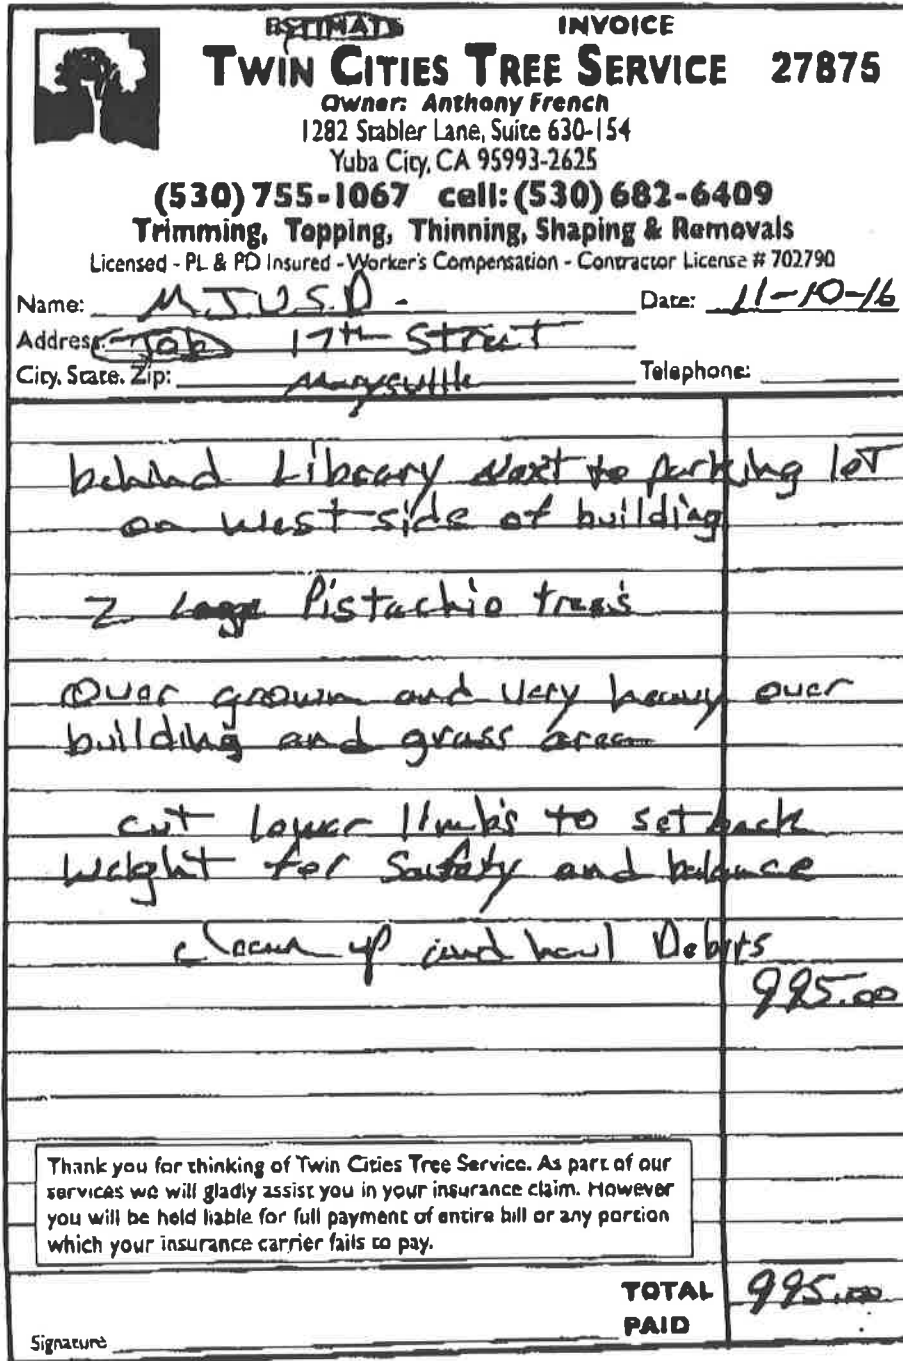 ESTIMATE INVOICE
TWIN CITIES TREE SERVICE 27875
Owner: Anthony French
1282 Stabler Lane, Suite 630-154
Yuba City, CA 95993-2625
(530) 755-1067 cell: (530) 682-6409
Trimming, Topping, Thinning, Shaping & Removals
Licensed - PL & PD Insured - Worker's Compensation - Contractor License # 702790
Name: M.J.U.S.D. Date: 11-10-16
Address: Job 17th Street
City, State, Zip: Marysville Telephone:
behind Library Next to parking lot
on west side of building
2 Large Pistachio tree's
Over grown and very heavy over
building and grass area
cut lower limb's to set back
weight for Safety and balance
clean up and haul Debirs
995.00
Thank you for thinking of Twin Cities Tree Service. As part of our
services we will gladly assist you in your insurance claim. However
you will be held liable for full payment of entire bill or any portion
which your insurance carrier fails to pay.
TOTAL 995.00
PAID
Signature